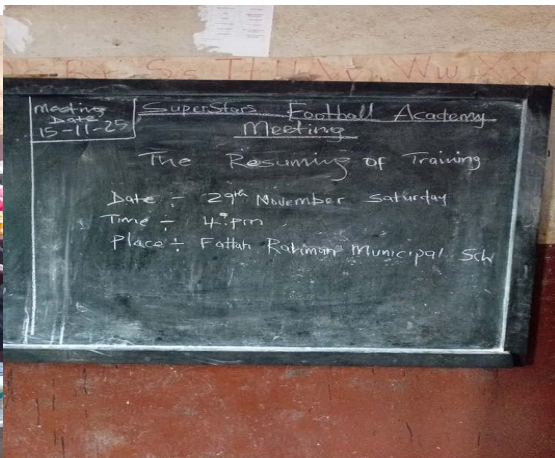 Meeting
Date
15-11-25
SuperStars Football Academy
Meeting
The Resuming of Training
Date :- 29th November Saturday
Time ÷ 4:pm
Place ÷ Fattah Rahiman Municipal Sch